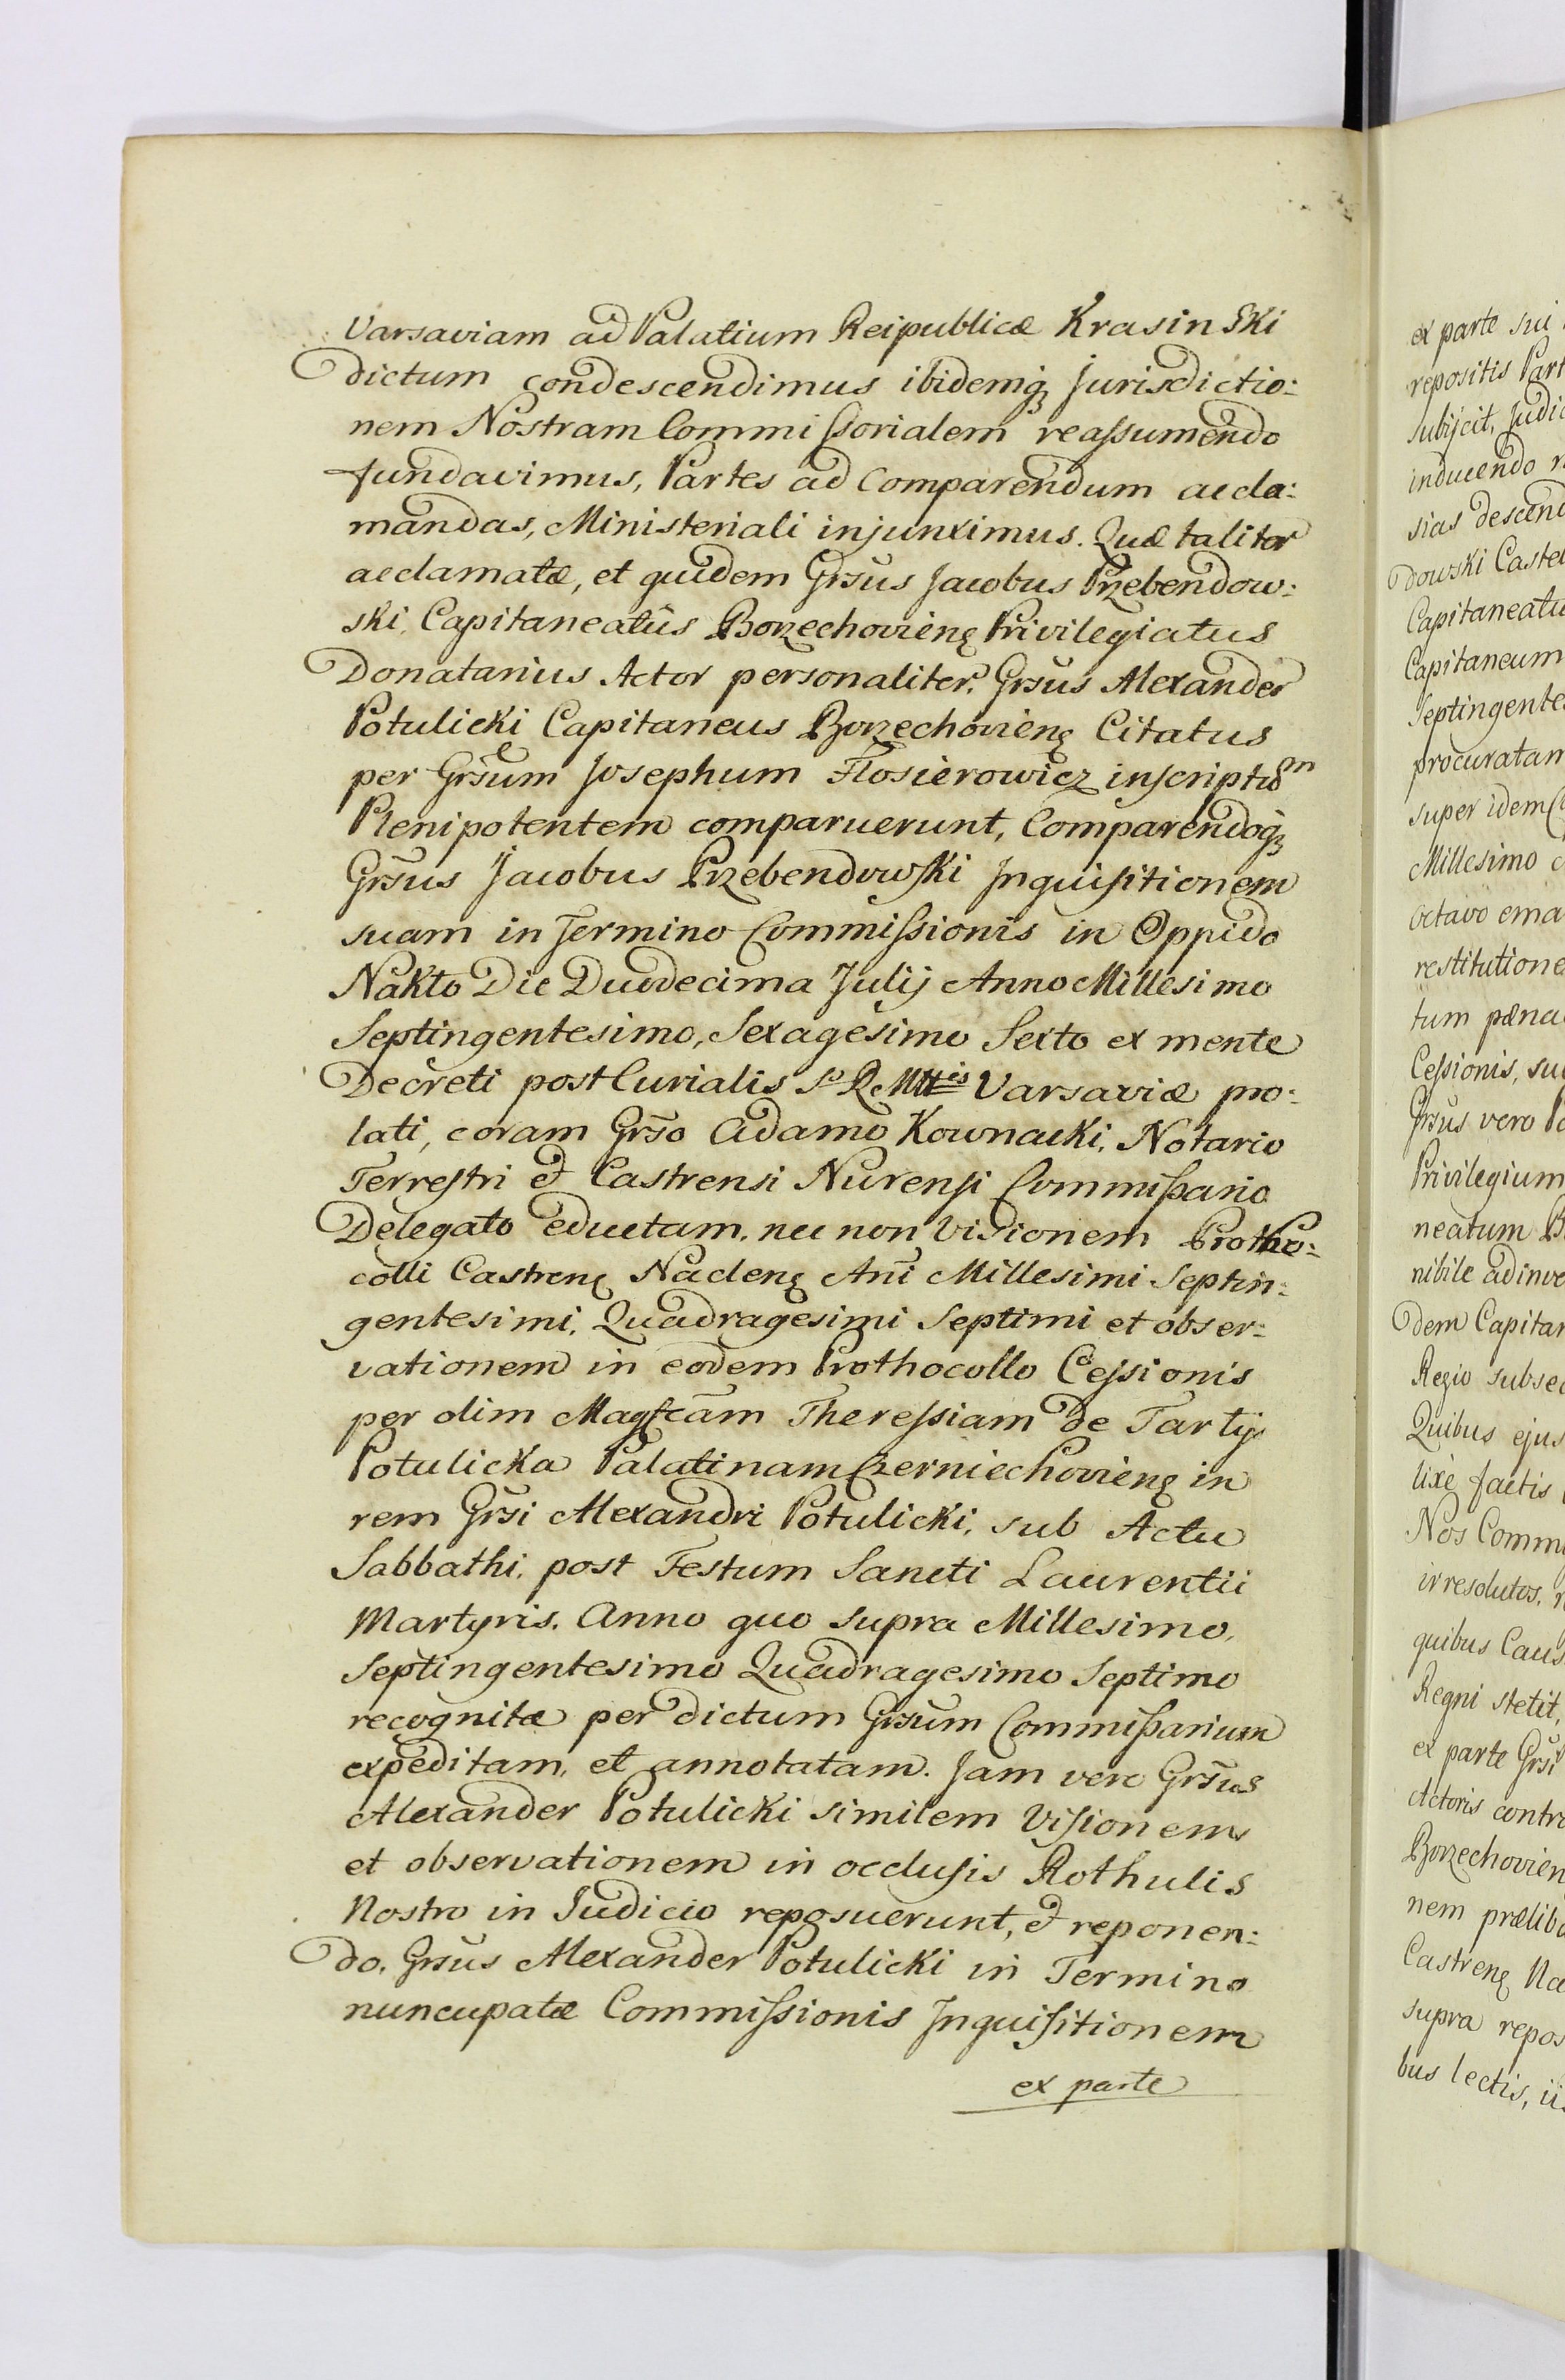 Varsaviam ad Palatium Reipublicæ Krasinski
dictum condescendimus ibidemq; Jurisdictio:
nem Nostram Commissorialem reassumendo
fundavimus, Partes ad Comparendum accla:
mandas, Ministeriali injunximus. Quæ taliter
acclamatæ, et quidem Grsus Jacobus Przebendow:
ski, Capitaneatûs Borzechovienę Privilegiatus
Donatarius Actor personaliter, Grsus Alexander
Potulicki Capitaneus Borzechovienę Citatus
per Grsum Josephum Flosierowicz inscriptum
Plenipotentem comparuerunt, Comparendoq;
Grsus Jacobus Przebendowski Inquisitionem
suam in Termino Commissionis in Oppido
Nakło Die Duodecima Julij Anno Millesimo
Septingentesimo, Sexagesimo Sexto ex mente
Decreti post Curialis S. R. Mttis Varsaviæ pro:
lati, coram Grso Adamo Kownacki, Notario
Terrestri & Castrensi Nurensi Commissario
Delegato eductam, nec non Visionem Protho:
colli Castrenę Naclenę Ani Millesimi Septin:
gentesimi, Quadragesimi Septimi et obser:
vationem in eodem Prothocollo Cessionis
per olim Magfcam Theressiam de Tarły
Potulicka Palatinam Czerniechovienę in
rem Grsi Alexandri Potulicki, sub Actu
Sabbathi, post Festum Sancti Laurentii
Martyris. Anno quo supra Millesimo,
Septingentesimo Quadragesimo Septimo
recognitæ per dictum Grsum Commissarium
expeditam, et annotatam. Jam vero Grsus
Alexander Potulicki similem Visionem
et observationem in occlusis Rothulis
Nostro in Judicio reposuerunt, & reponen:
do. Grsus Alexander Potulicki in Termino
nuncupatæ Commissionis Inquisitionem
ex parte
ex parte sui
repositis
subijcit,
inducendo
sias
dowski
Capitaneum
procuratam
super idem
Millesimo
octavo
tum pæna
Cessionis,
Grsus vero
Privilegium
neatum
nibile
dem
Regio
Quibus ejus
lixè factis
Nos
irresolutos,
quibus
Regni stetit,
ex parte Grsi
Actoris
nem
Castrenę
supra
bus lectis,